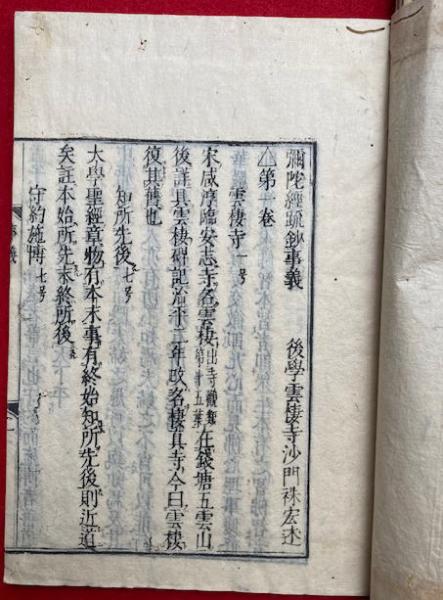 彌陀經疏鈔事義
後學雲棲寺沙門袾宏述
第一卷
雲棲寺 一号
宋咸淳臨安志寺名雲棲出寺觀類第十五葉在錢塘五雲山
後詳具雲棲碑記治平二年改名棲真寺今曰雲棲
復其舊也
知所先後 七号
大學聖經章物有本末事有終始知所先後則近道
矣註本始所先末終所後
守約施博 七号